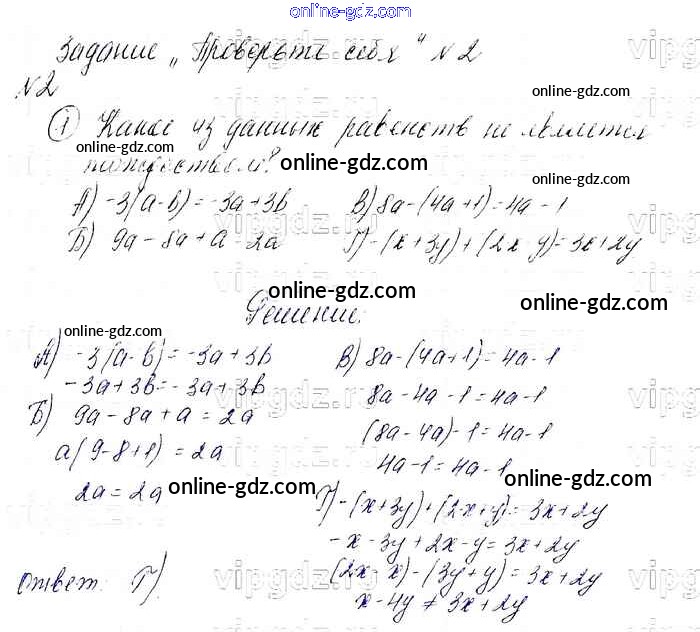 online-gdz.com
Задание "Проверьте себя" N2
N2
online-gdz.com
1 Какое из данных равенств не является
online-gdz.com
тождеством?
online-gdz.com
online-gdz.com
А) -3(a-b) = -3a+3b
В) 8a-(4a+1)=4a-1
Б) 9a-8a+a=2a
Г) -(x+3y)+(2x-y)=3x+2y
online-gdz.com
online-gdz.com
Решение:
online-gdz.com
А) -3(a-b)=-3a+3b
-3a+3b=-3a+3b
Б) 9a-8a+a=2a
a(9-8+1)=2a
2a=2a
online-gdz.com
В) 8a-(4a+1)=4a-1
8a-4a-1=4a-1
(8a-4a)-1=4a-1
4a-1=4a-1
online-gdz.com
Г) -(x+3y)+(2x+y)=3x+2y
-x-3y+2x-y=3x+2y
(2x-x)-(3y+y)=3x+2y
x-4y≠3x+2y
Ответ: Г).